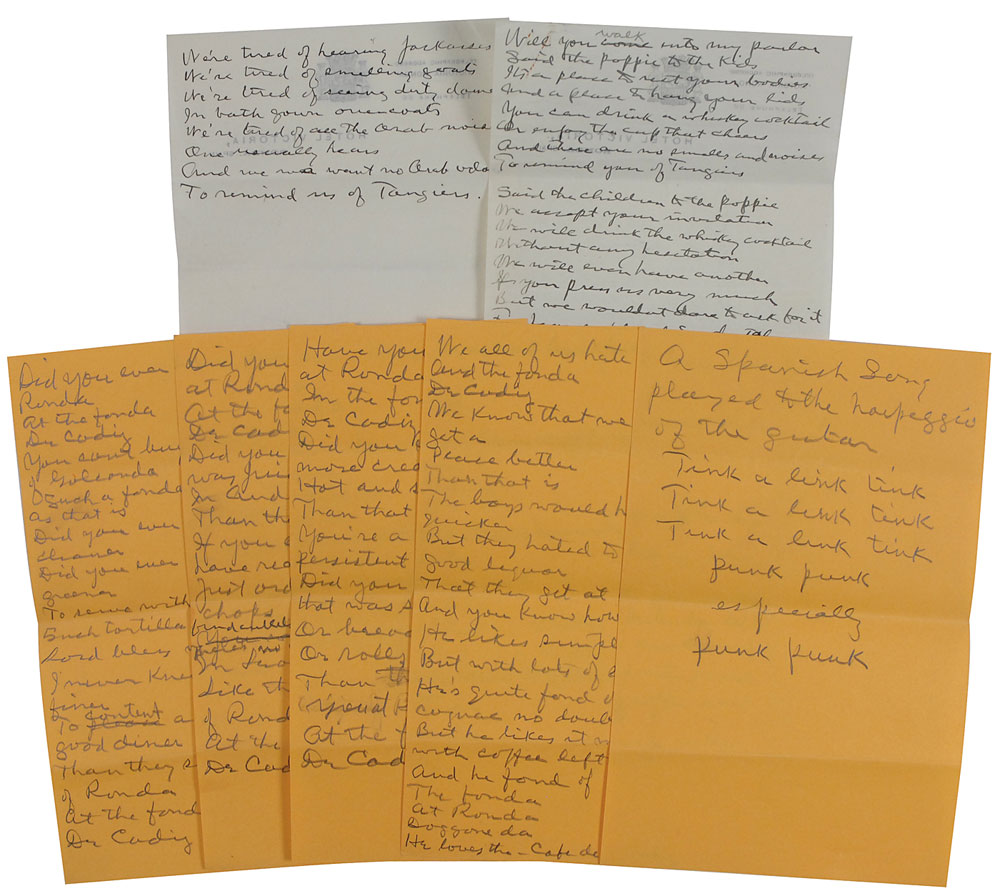 We're tired of hearing Jackasses
We're tired of smelling goats
We're tired of seeing dirty dame
In bath gown overcoats
We're tired of all the Arab noise
One usually hears
And we want no Arab
To remind us of Tangiers.
Will you come walk into my parlor
Said the poppie to the kids
It's a place to rest your bodies
And a place to hang your lids
You can drink a whiskey cocktail
Or enjoy the cup that cheers
And there are no smells and noises
To remind you of Tangiers
Said the children to the poppie
We accept your invitation
We will drink the whisky cocktail
Without any hesitation
We will even have another
If you press us very much
But we wouldnt dare to ask for it
HOTEL VICTORIA,
Did you ever
Ronda
At the fonda
De Cadiz
You cant
of Golconda
Such a fonda
as that is
Did you ever
cleaner
Did you ever
greener
To serve with
Such tortilla
Lord bless
I never kne
finer
To please content a
good diner
Than they s
of Ronda
At the fond
De Cadiz
Did you
at Rond
At the fo
De Cad
Did you
was
In And
Than th
If you
have rea
Just ord
chops
In
Like th
of Rond
At the
De Cad
Have you
at Ronda
In the fon
De Cadiz
Did you
more crea
Hot and s
Than that
You're a
persistent
Did you
Hot was s
Or bread
Or rolls
Than th
special R
At the f
De Cad
We all of us hate
And the fonda
De Cadiz
We know that we
get a
Peace better
Than that is
The boys would h
quicker
But they hated to
good liquor
That they get at
And you know how
He likes simple
But with lots of
He's quite fond o
cognac no doub
But he likes it
with coffee left
And he fond of
The fonda
at Ronda
Doggone da
He loves the - Cafe de
A Spanish Song
played to the harpeggio
of the guitar
Tink a link tink
Tink a link tink
Tink a link tink
punk punk
especially
punk punk